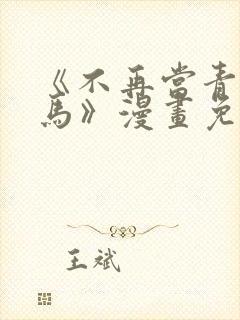 《不再当青
馬》漫畫免
王斌